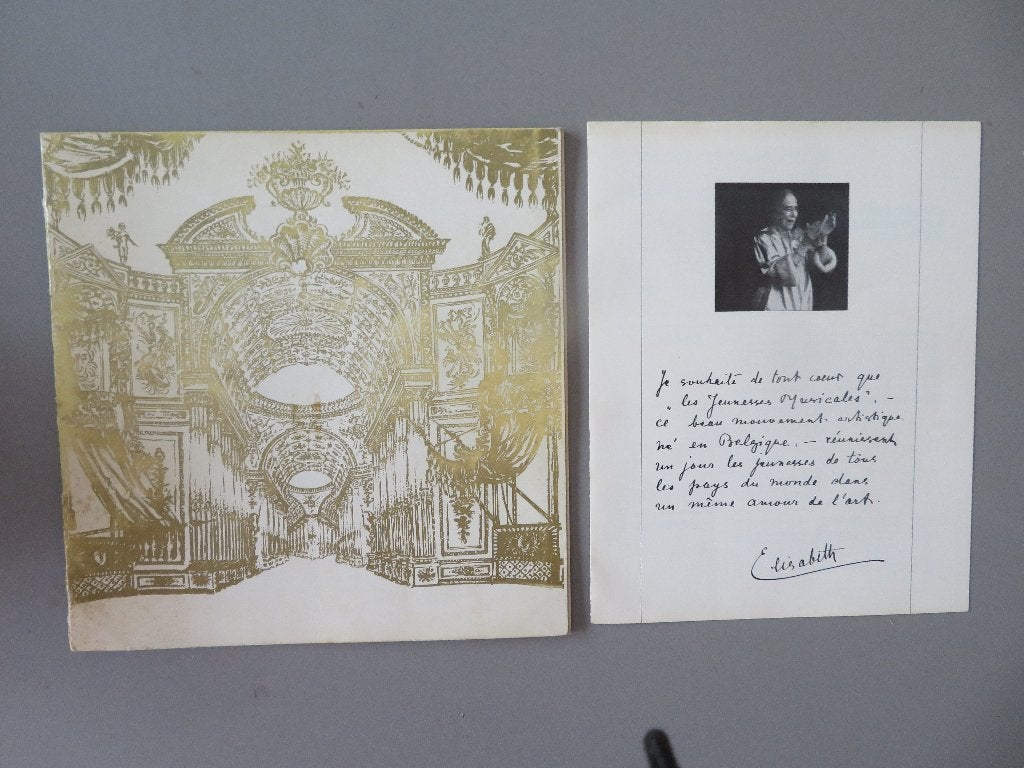 Je souhaite de tout coeur que
"les Jeunesses Musicales", –
ce beau mouvement artistique
né en Belgique, – réunissent
un jour les jeunesses de tous
les pays du monde dans
un même amour de l'art.
Elisabeth